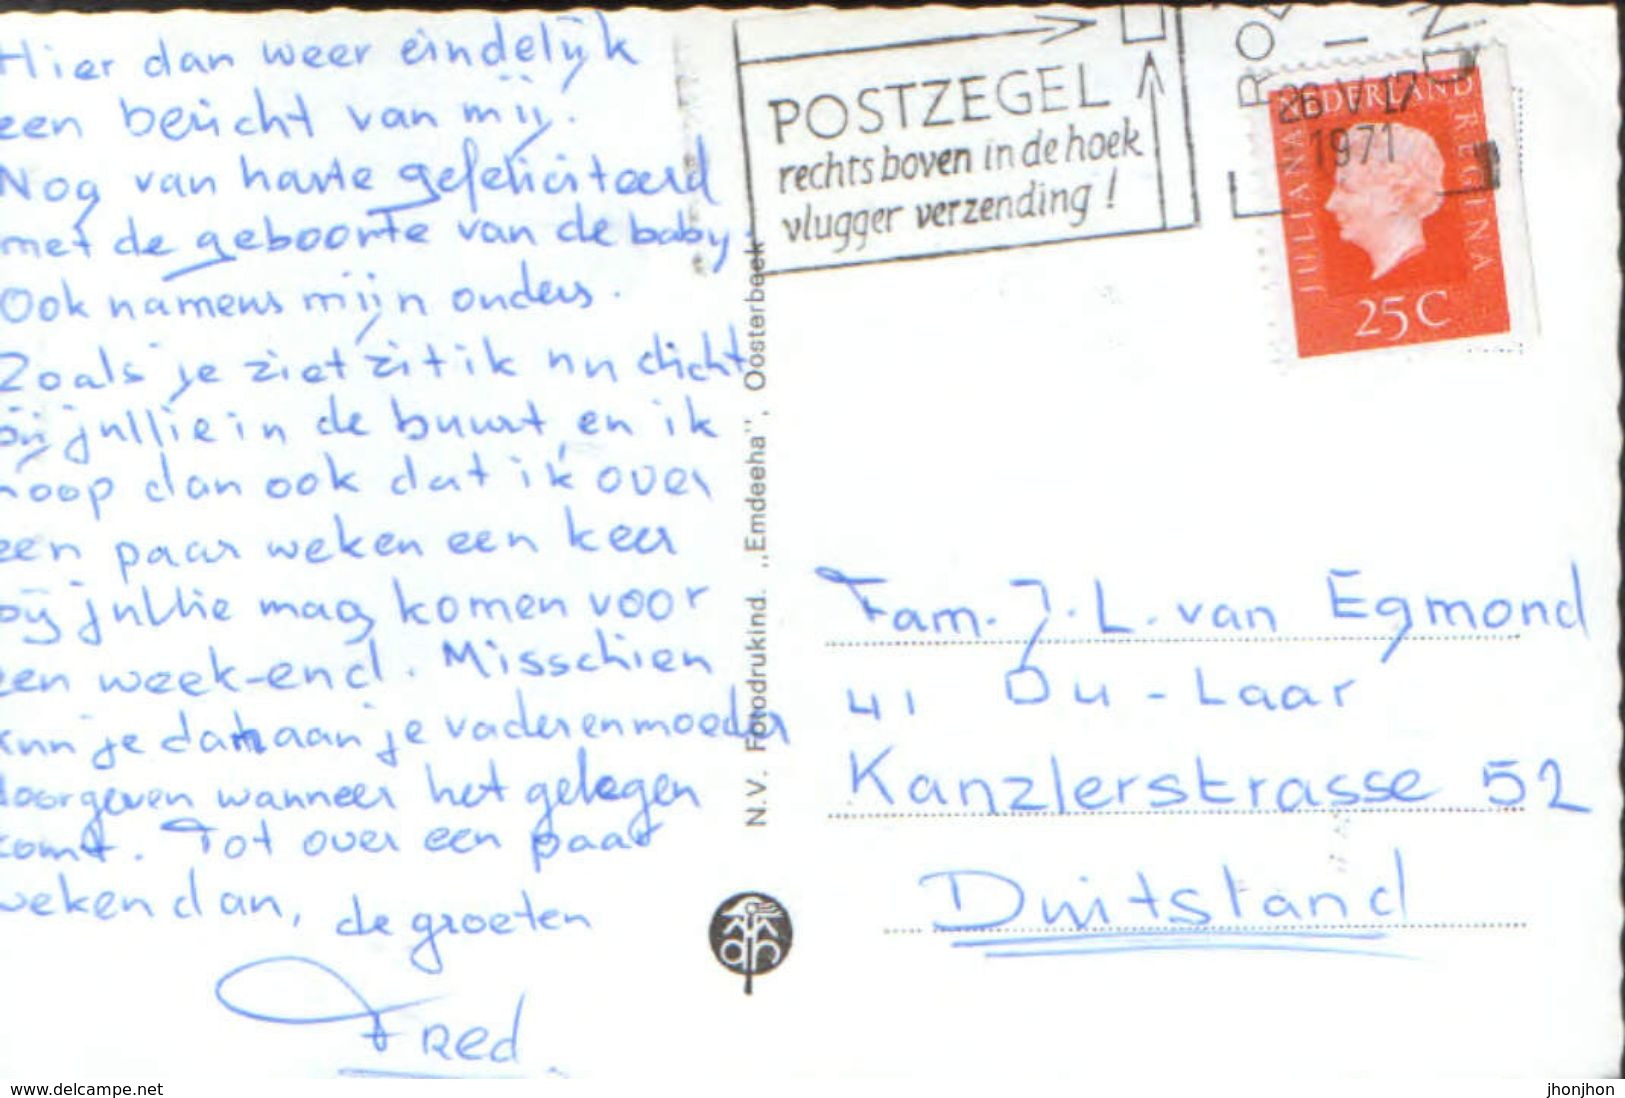 Hier dan weer eindelijk
een bericht van mij.
Nog van harte gefeliciteerd
met de geboorte van de baby.
Ook namens mijn ouders.
Zoals je ziet zit ik nu dicht
bij jullie in de buurt, en ik
hoop dan ook dat ik over
een paar weken een keer
bij jullie mag komen voor
een week-end. Misschien
kun je dan aan je vader en moeder
doorgeven wanneer het gelegen
komt. Tot over een paar
weken dan, de groeten
Fred.
N.V. Fotodrukind. ,,Emdeeha", Oosterbeek
POSTZEGEL
rechts boven in de hoek
vlugger verzending!
26 V 17
1971
NEDERLAND
JULIANA
REGINA
25 C
Fam. J. L. van Egmond
41 Du-Laar
Kanzlerstrasse 52
Duitsland
www.delcampe.net
jhonjhon